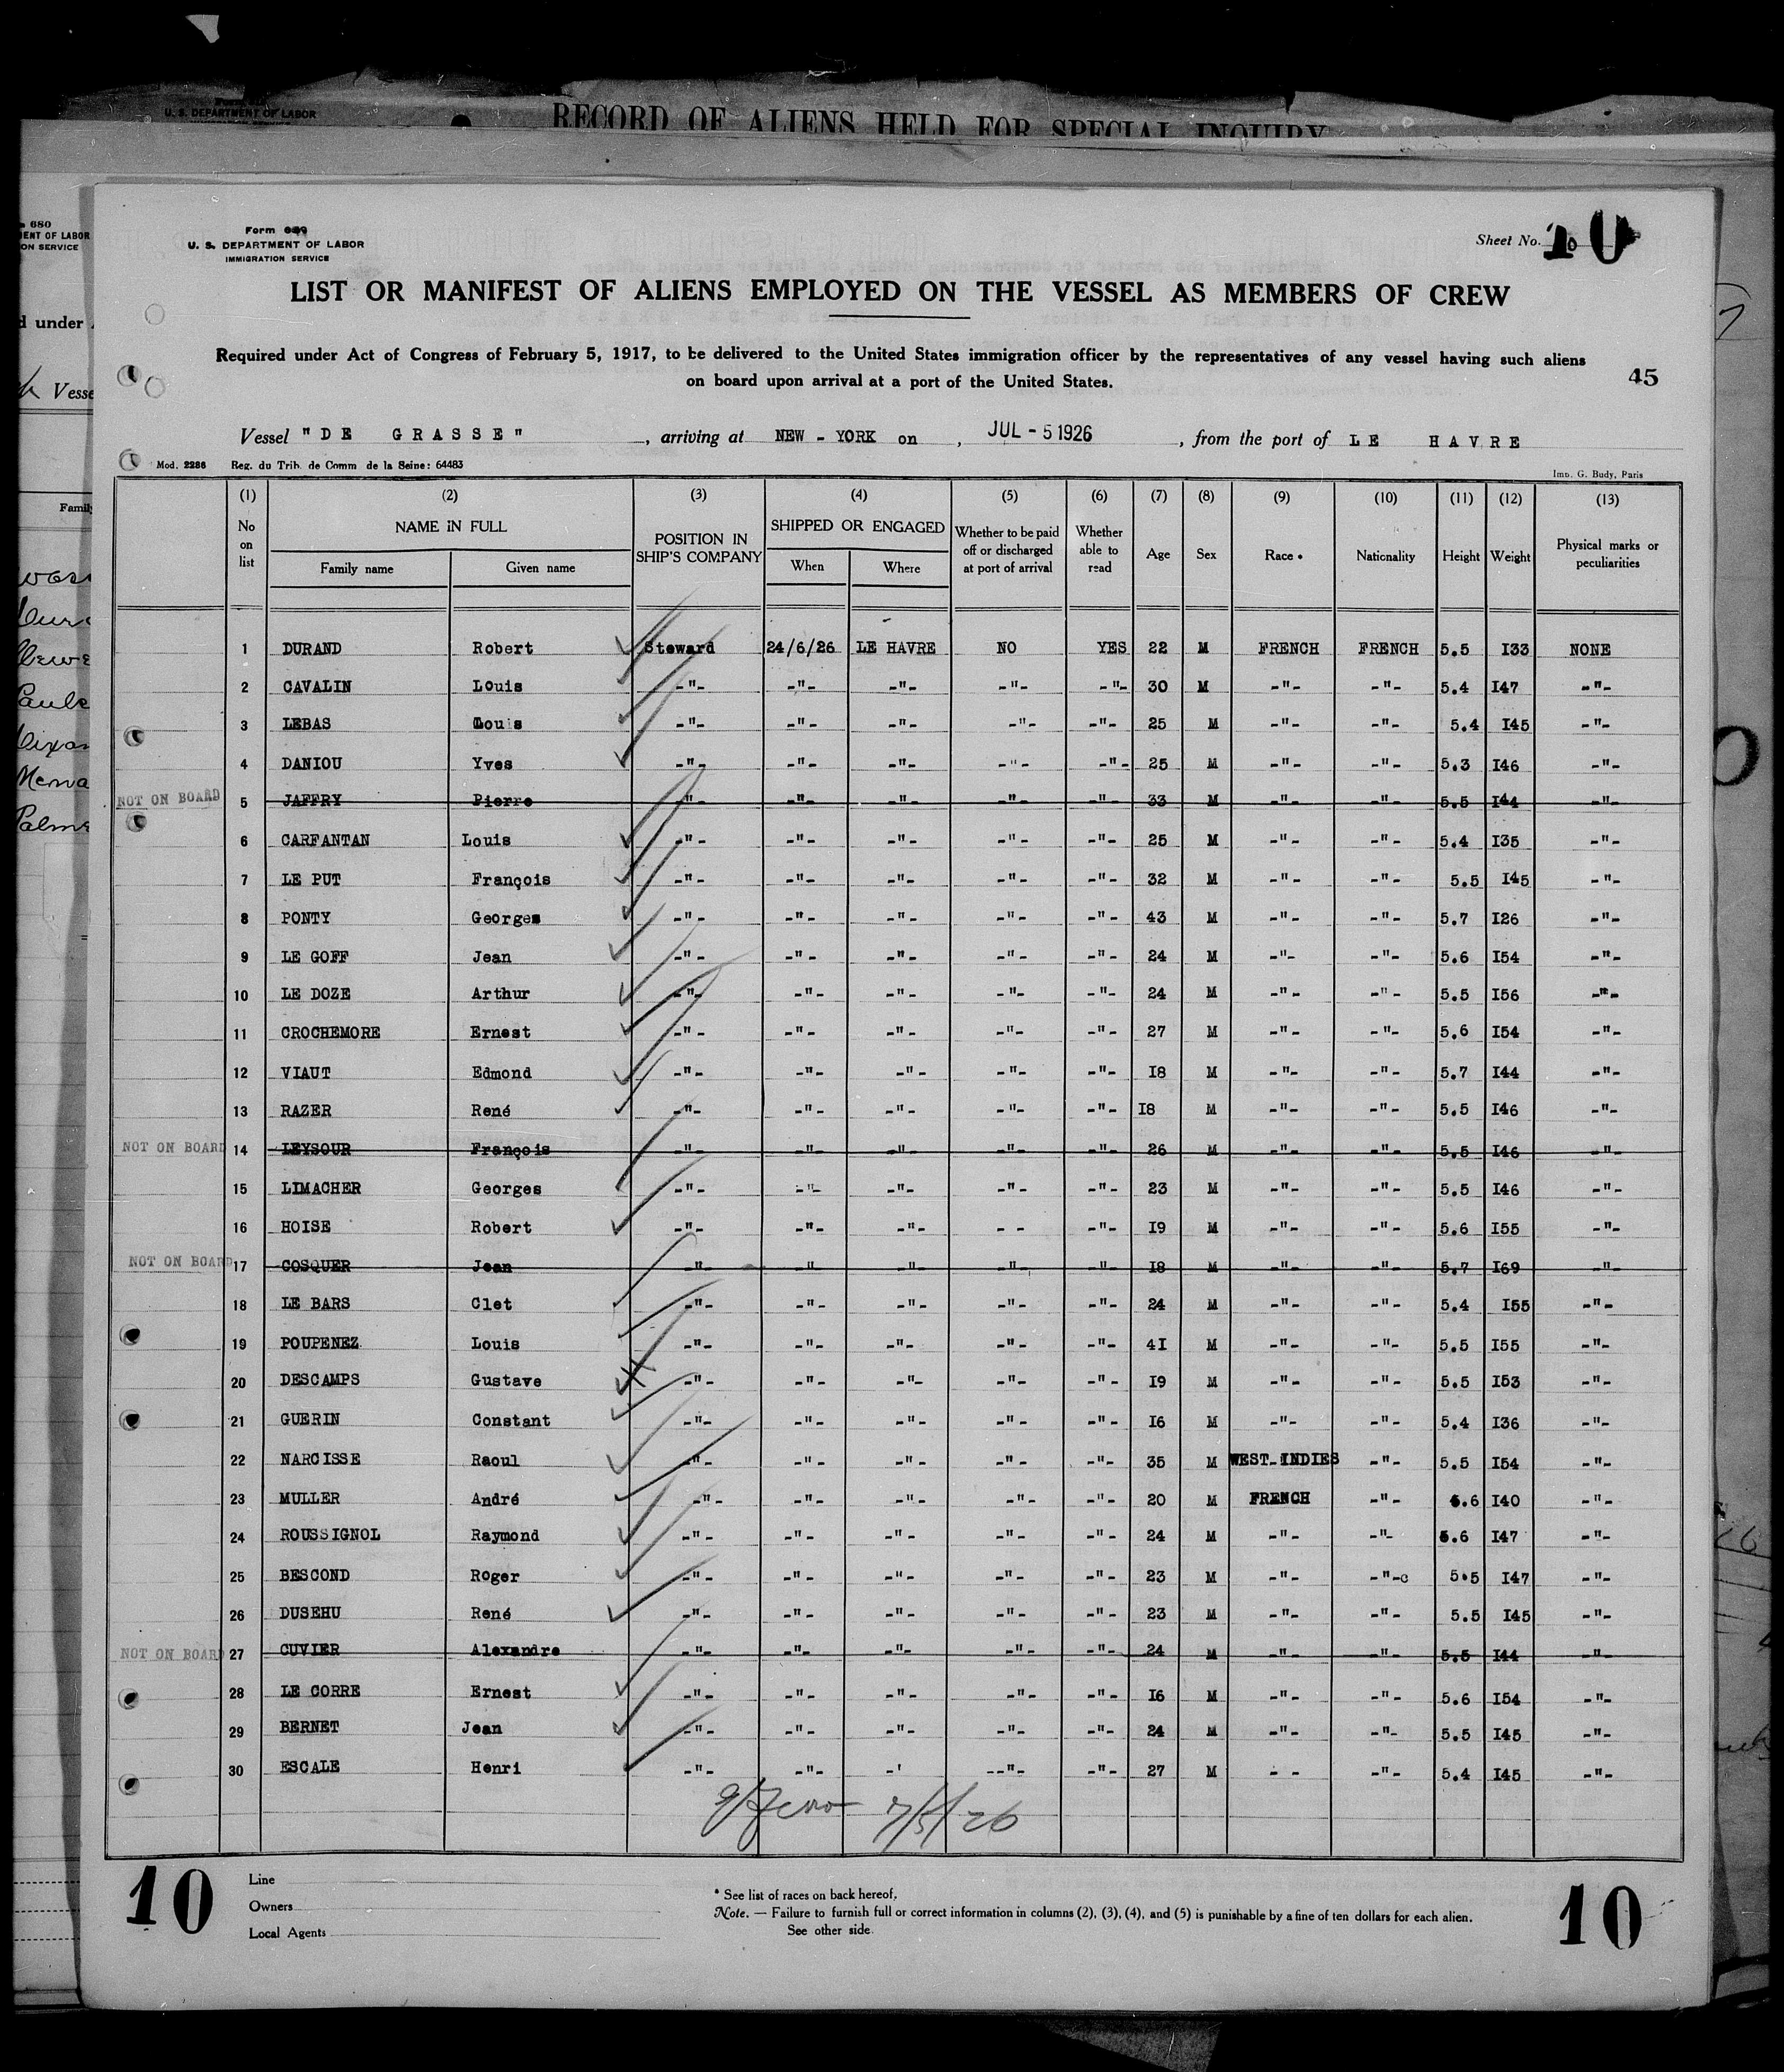 U. S. DEPARTMENT OF LABOR
RECORD OF ALIENS HELD FOR SPECIAL INQUIRY
680
MENT OF LABOR
ON SERVICE
d under
Vesse
Famil
Form 689
U. S. DEPARTMENT OF LABOR
IMMIGRATION SERVICE
Sheet No. 10
LIST OR MANIFEST OF ALIENS EMPLOYED ON THE VESSEL AS MEMBERS OF CREW
Required under Act of Congress of February 5, 1917, to be delivered to the United States immigration officer by the representatives of any vessel having such aliens
on board upon arrival at a port of the United States.
45
Vessel "DE GRASSE", arriving at NEW - YORK on, JUL - 5 1926, from the port of LE HAVRE
Mod. 2286 Reg. du Trib. de Comm de la Seine: 64483
Imp. G. Budy, Paris
(1) (2) (3) (4) (5) (6) (7) (8) (9) (10) (11) (12) (13)
No on list NAME IN FULL POSITION IN SHIP'S COMPANY SHIPPED OR ENGAGED Whether to be paid off or discharged at port of arrival Whether able to read Age Sex Race * Nationality Height Weight Physical marks or peculiarities
Family name Given name When Where
1 DURAND Robert Steward 24/6/26 LE HAVRE NO YES 22 M FRENCH FRENCH 5.5 I33 NONE
2 CAVALIN Louis -"- -"- -"- -"- -"- 30 M -"- -"- 5.4 I47 -"-
3 LEBAS Louis -"- -"- -"- -"- -"- 25 M -"- -"- 5.4 I45 -"-
4 DANIOU Yves -"- -"- -"- -"- -"- 25 M -"- -"- 5.3 I46 -"-
NOT ON BOARD 5 JAFFRY Pierre -"- -"- -"- -"- -"- 33 M -"- -"- 5.5 I44 -"-
6 CARFANTAN Louis -"- -"- -"- -"- -"- 25 M -"- -"- 5.4 I35 -"-
7 LE PUT François -"- -"- -"- -"- -"- 32 M -"- -"- 5.5 I45 -"-
8 PONTY Georges -"- -"- -"- -"- -"- 43 M -"- -"- 5.7 I26 -"-
9 LE GOFF Jean -"- -"- -"- -"- -"- 24 M -"- -"- 5.6 I54 -"-
10 LE DOZE Arthur -"- -"- -"- -"- -"- 24 M -"- -"- 5.5 I56 -"-
11 CROCHEMORE Ernest -"- -"- -"- -"- -"- 27 M -"- -"- 5.6 I54 -"-
12 VIAUT Edmond -"- -"- -"- -"- -"- I8 M -"- -"- 5.7 I44 -"-
13 RAZER René -"- -"- -"- -"- -"- I8 M -"- -"- 5.5 I46 -"-
NOT ON BOARD 14 LEYSOUR François -"- -"- -"- -"- -"- 26 M -"- -"- 5.5 I46 -"-
15 LIMACHER Georges -"- -"- -"- -"- -"- 23 M -"- -"- 5.5 I46 -"-
16 HOISE Robert -"- -"- -"- - - -"- I9 M -"- -"- 5.6 I55 -"-
NOT ON BOARD 17 COSQUER Jean -"- -"- -"- -"- -"- I8 M -"- -"- 5.7 I69 -"-
18 LE BARS Clet -"- -"- -"- -"- -"- 24 M -"- -"- 5.4 I55 -"-
19 POUPENEZ Louis -"- -"- -"- -"- -"- 4I M -"- -"- 5.5 I55 -"-
20 DESCAMPS Gustave -"- -"- -"- -"- -"- I9 M -"- -"- 5.5 I53 -"-
21 GUERIN Constant -"- -"- -"- -"- -"- I6 M -"- -"- 5.4 I36 -"-
22 NARCISSE Raoul -"- -"- -"- -"- -"- 35 M WEST-INDIES -"- 5.5 I54 -"-
23 MULLER André -"- -"- -"- -"- -"- 20 M FRENCH -"- 5.6 I40 -"-
24 ROUSSIGNOL Raymond -"- -"- -"- -"- -"- 24 M -"- -"- 5.6 I47 -"-
25 BESCOND Roger -"- -"- -"- -"- -"- 23 M -"- -"-c 5.5 I47 -"-
26 DUSEHU René -"- -"- -"- -"- -"- 23 M -"- -"- 5.5 I45 -"-
NOT ON BOARD 27 CUVIER Alexandre -"- -"- -"- -"- -"- 24 M -"- -"- 5.5 I44 -"-
28 LE CORRE Ernest -"- -"- -"- -"- -"- I6 M -"- -"- 5.6 I54 -"-
29 BERNET Jean -"- -"- -"- -"- -"- 24 M -"- -"- 5.5 I45 -"-
30 ESCALE Henri -"- -"- -' --"- -"- 27 M - - -"- 5.4 I45 -"-
7/5/26
10
Line
Owners
Local Agents
* See list of races on back hereof.
Note. — Failure to furnish full or correct information in columns (2), (3), (4), and (5) is punishable by a fine of ten dollars for each alien.
See other side.
10